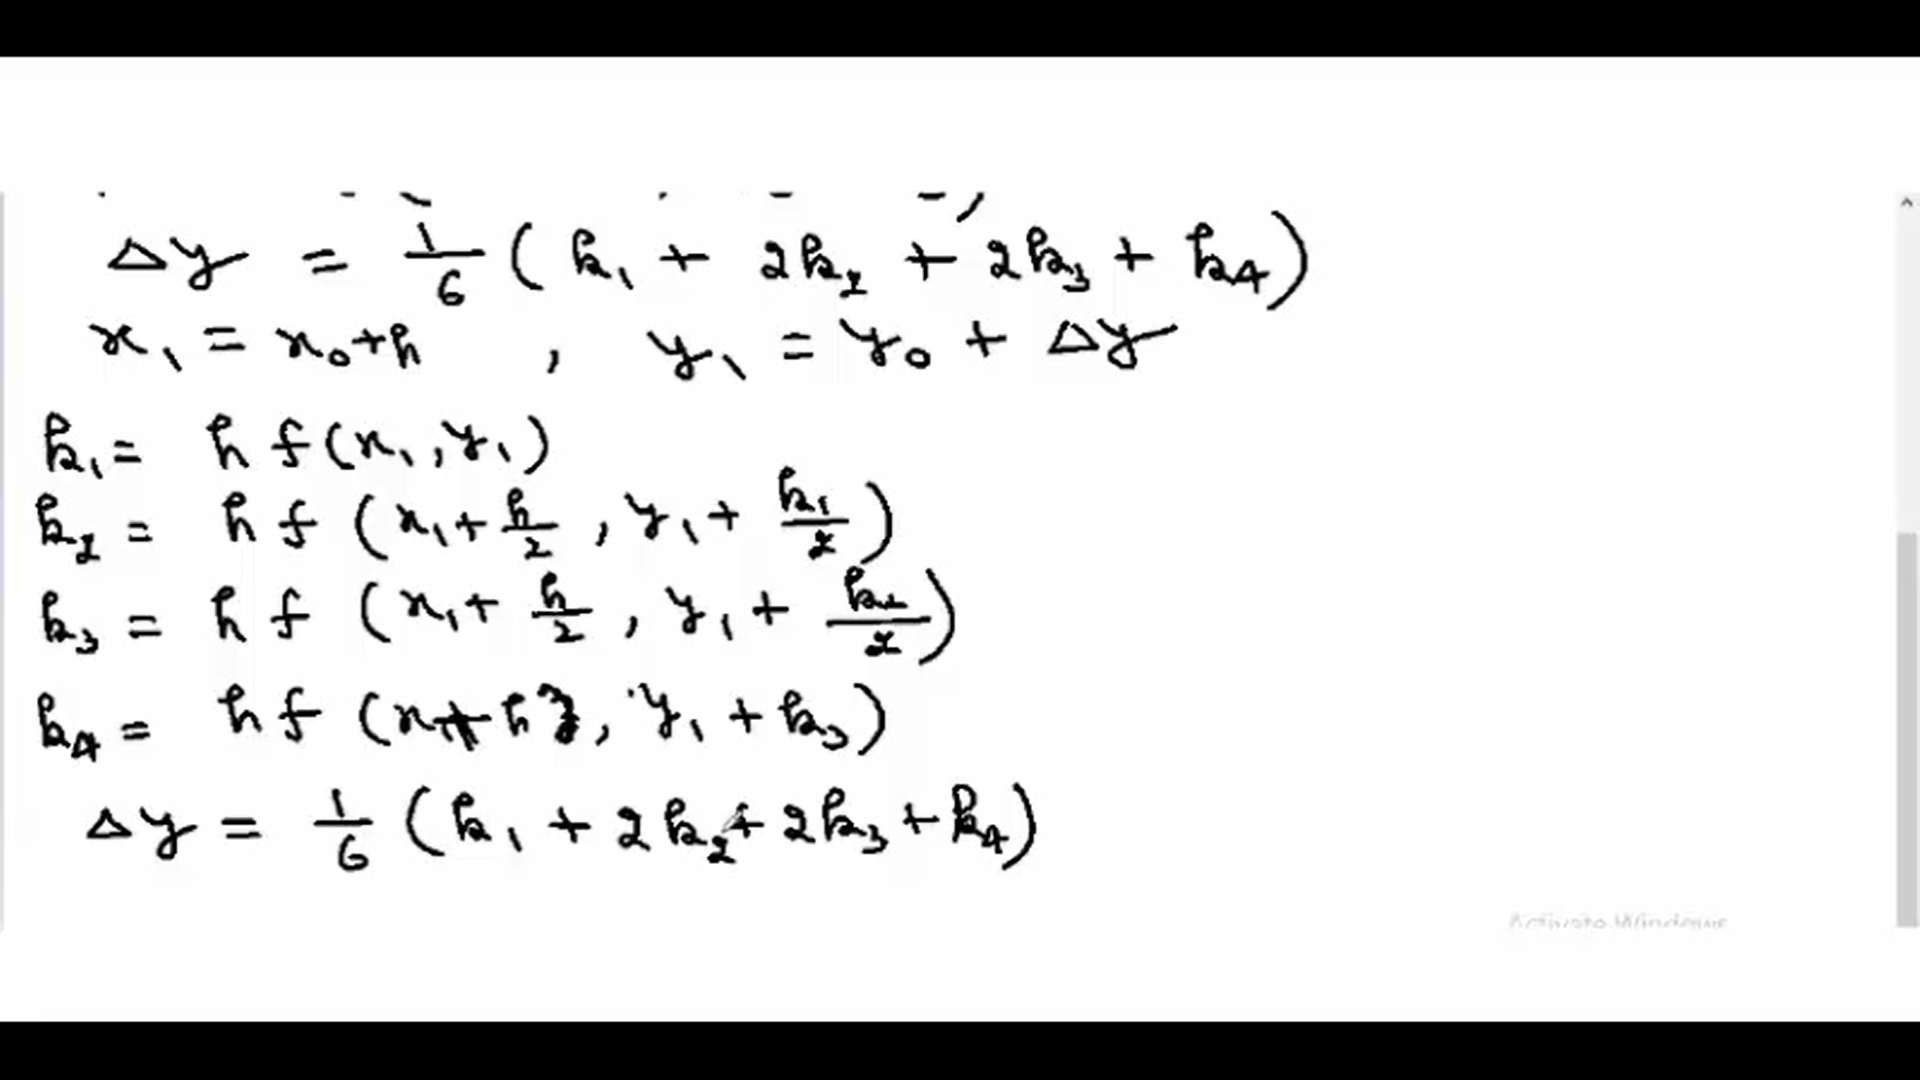 Δy = 1/6 (k₁ + 2k₂ + 2k₃ + k₄)
x₁ = x₀+h , y₁ = y₀ + Δy
k₁ = h f(x₁, y₁)
k₂ = h f (x₁ + h/2 , y₁ + k₁/2)
k₃ = h f (x₁ + h/2 , y₁ + k₂/2)
k₄ = h f (x₁ + h , y₁ + k₃)
Δy = 1/6 (k₁ + 2k₂ + 2k₃ + k₄)
Activate Windows